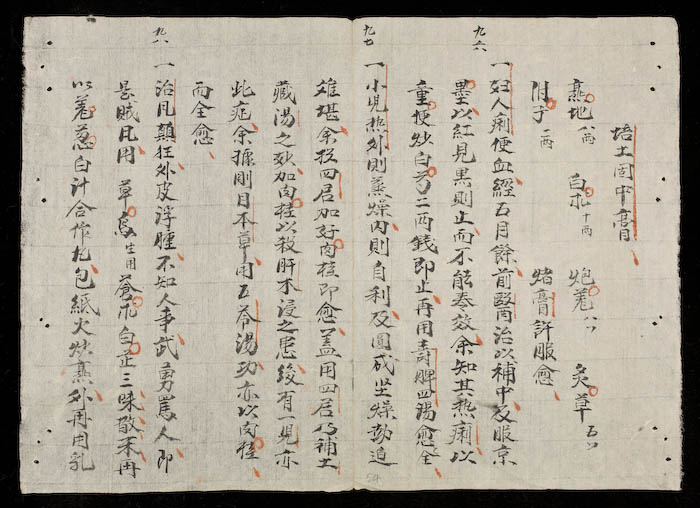 培土固中膏
熟地八兩 白朮十兩 炮薑八 炙草五
附子二兩 焙膏許服愈
九六
一婦人痢便血經五月餘前醫治以補中及服京
墨以紅見黑則止而不能奏效余知其熱痢以
童便炒白芍二兩錢即止再用壽脾四湯愈全
九七
一小兒热外則蒸燥内則自利及圓成坐燥勢迫
难堪余投四君加好肉桂即愈蓋用四君乃補土
藏湯之效加肉桂以殺肝木侵之患後有一兒亦
此症余據剛目本草用五苓湯功亦以肉桂
而全愈
九八
一治凡顛狂外皮浮腫不知人事武勇罵人即
是賊凡用 草烏生用 蒼朮白芷三味散末再
以薑葱白汁合作丸包紙火炆熟外再用乳